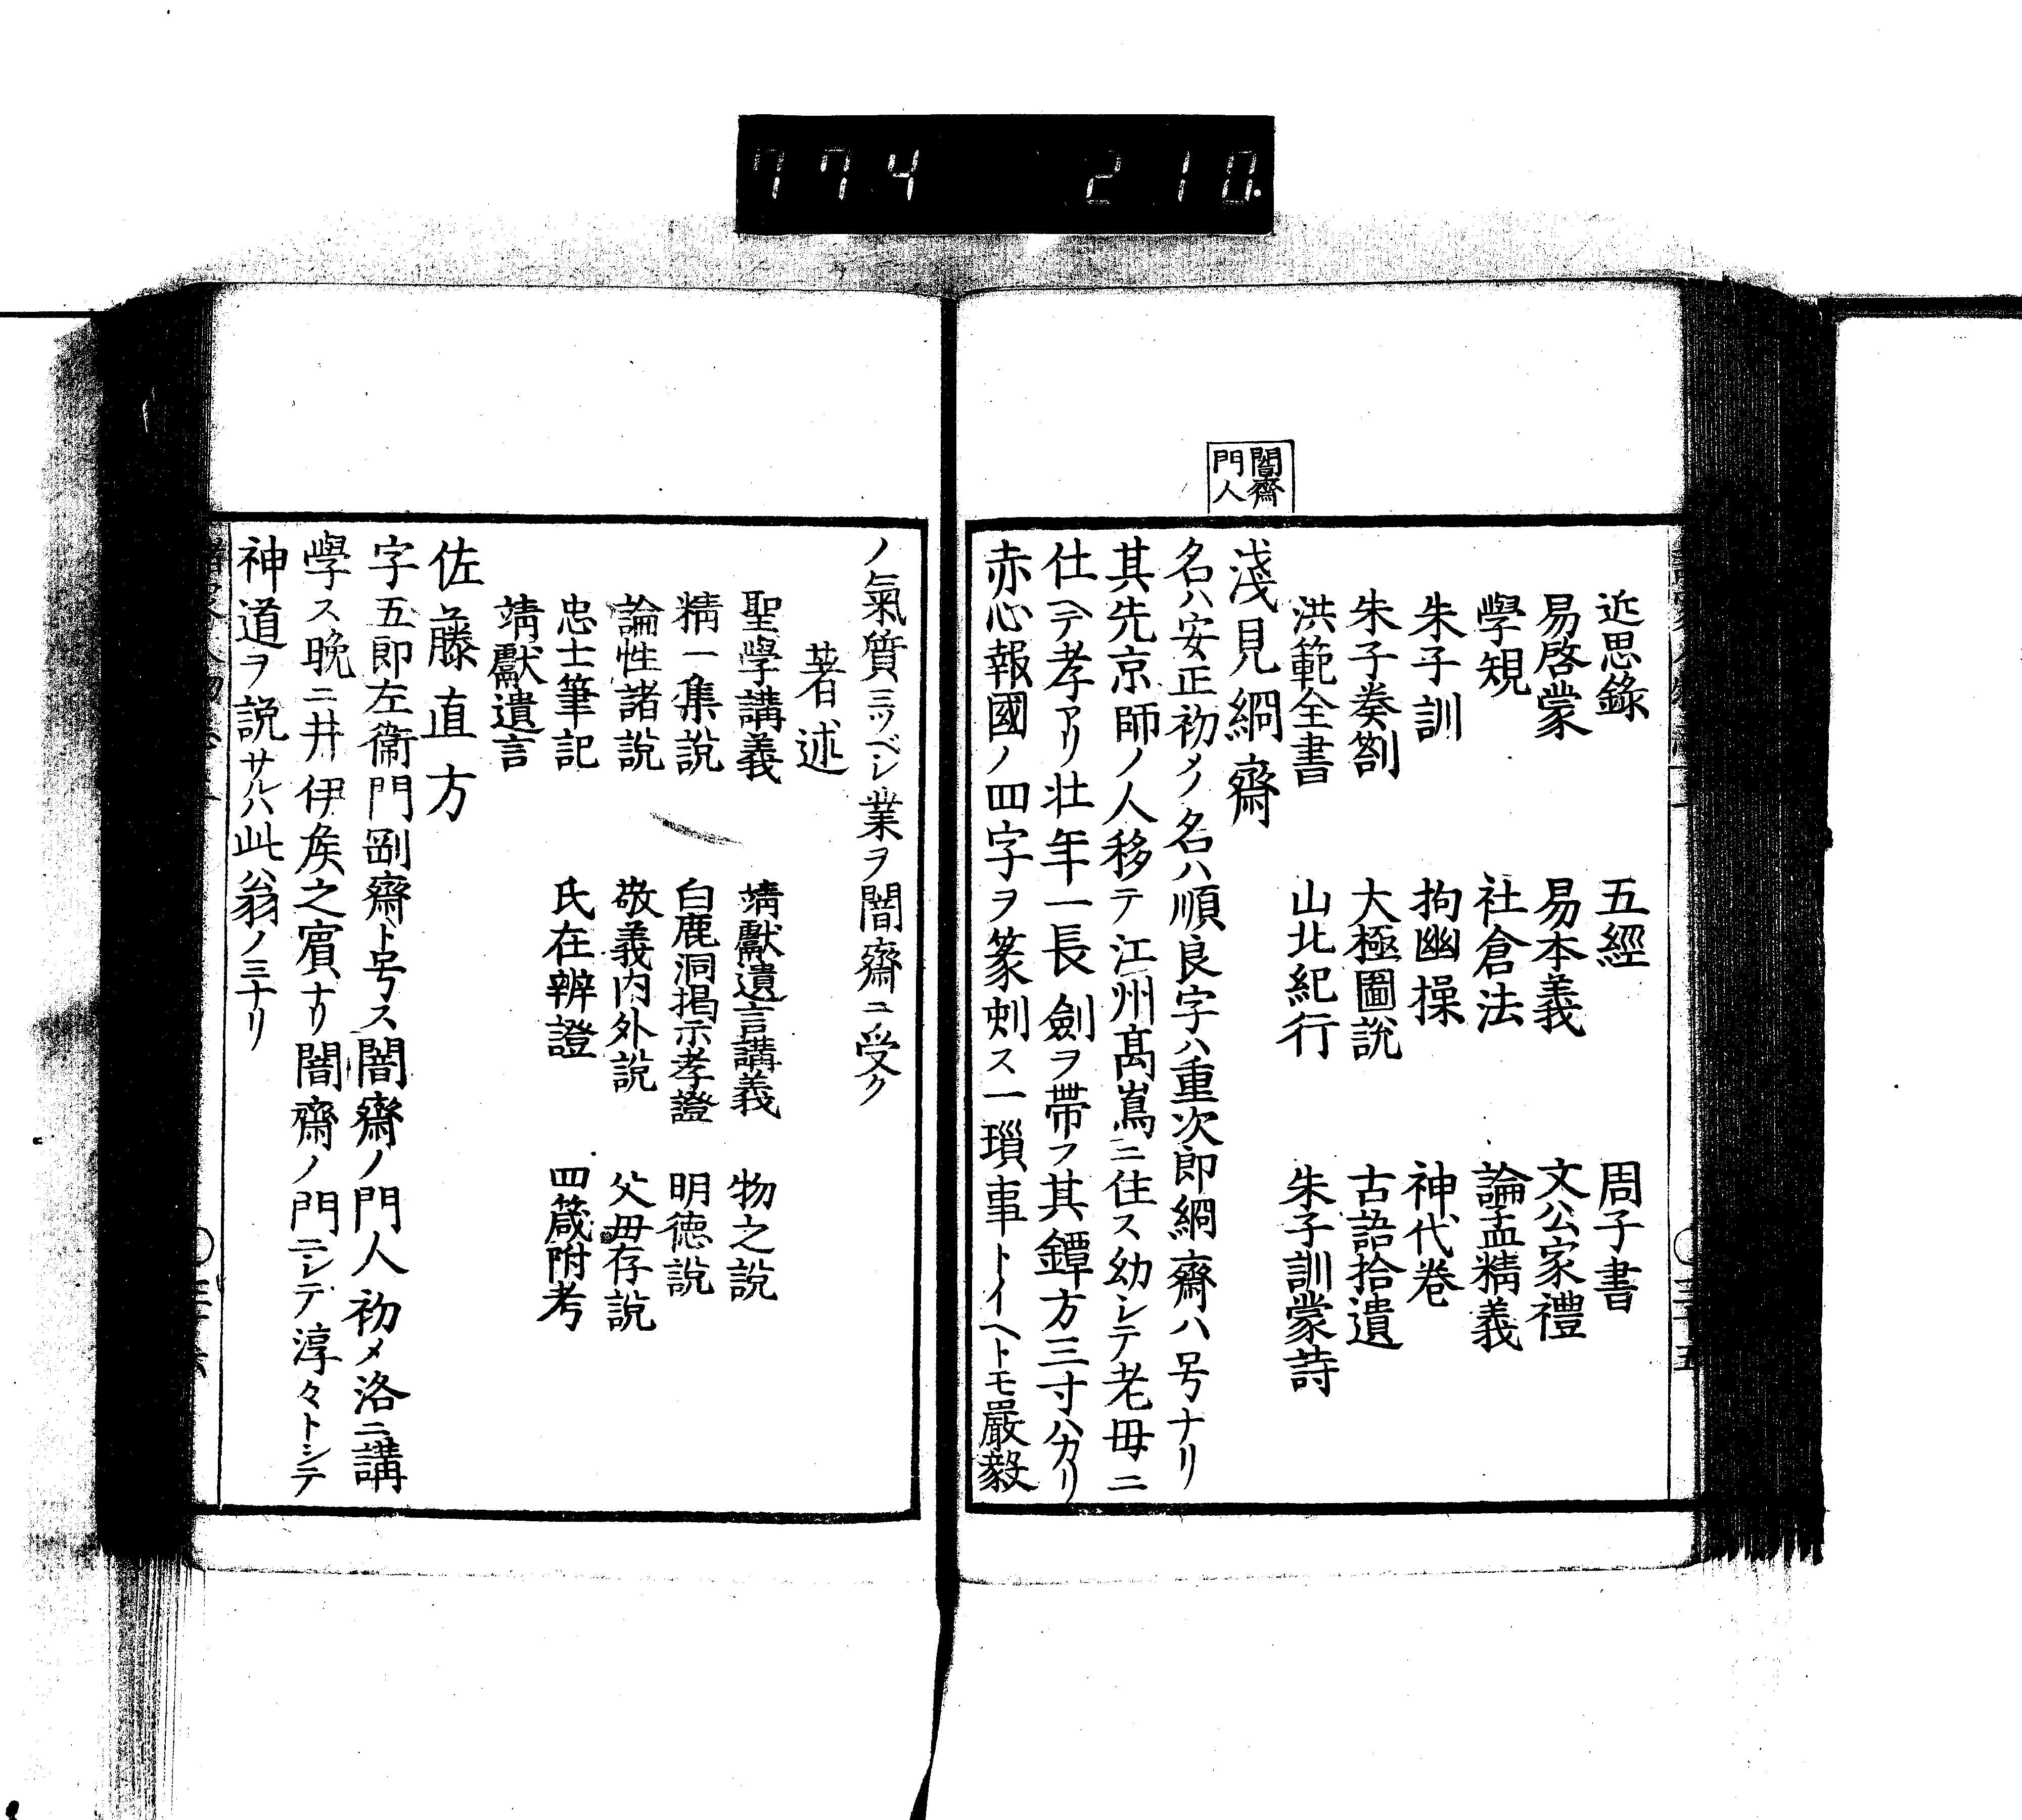 774 210.
近思錄 五經 周子書
易啓蒙 易本義 文公家禮
學規 社倉法 論孟精義
朱子訓 拘幽操 神代卷
朱子奏劄 大極圖說 古語拾遺
洪範全書 山北紀行 朱子訓蒙詩
闇齋
門人
淺見絅齋
名ハ安正初メノ名ハ順良字ハ重次郎絅齋ハ号ナリ
其先京師ノ人移テ江州髙嶌ニ住ス幼シテ老毋ニ
仕ヘテ孝アリ壮年一長劍ヲ帶フ其鐔方三寸ハカリ
赤心報國ノ四字ヲ篆刻ス一瑣事トイヘトモ嚴毅
ノ氣質ミツベシ業ヲ闇齋ニ受ク
著述
聖學講義 靖獻遺言講義 物之說
精一集說 白鹿洞揭示孝證 明德說
論性諸說 敬義内外說 父毋存說
忠士筆記 氏在辨證 四箴附考
靖獻遺言
佐藤直方
字五郎左衞門剛齋ト号ス闇齋ノ門人初メ洛ニ講
學ス晚ニ井伊矦之賔ナリ闇齋ノ門ニシテ淳々トシテ
神道ヲ說サルハ此ハ翁ノミナリ